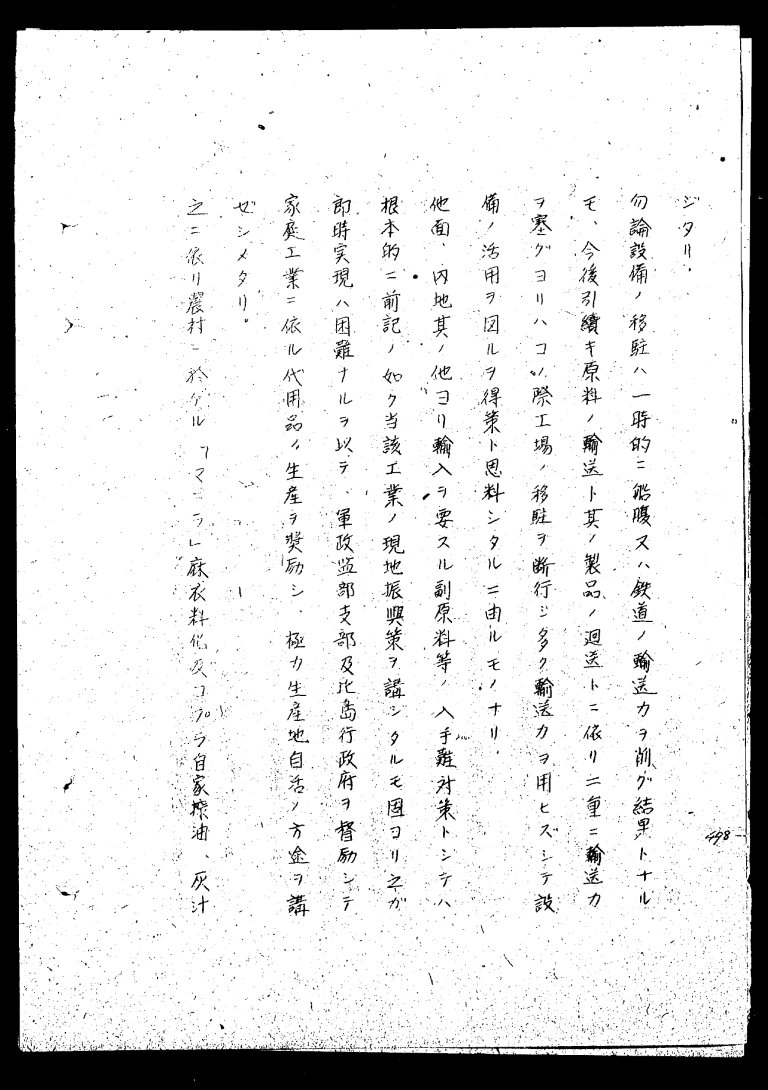 ジタリ.
勿論設備ノ移駐ハ一時的ニ船腹又ハ鉄道ノ輸送力ヲ削グ結果トナル
モ、今後引續キ原料ノ輸送ト其ノ製品ノ廻送トニ依リ二重ニ輸送力
ヲ塞グヨリハコノ際工場ノ移駐ヲ断行シ多ク輸送力ヲ用ヒズシテ設
備ノ活用ヲ図ルヲ得策ト思料シタルニ由ルモノナリ.
他面、内地其ノ他ヨリ輸入ヲ要スル副原料等ノ入手難対策トシテハ
根本的ニ前記ノ如ク当該工業ノ現地振興策ヲ講シタルモ固ヨリ之ガ
即時実現ハ困難ナルヲ以テ、軍政監部支部及比島行政府ヲ督励シテ
家庭工業ニ依ル代用品ノ生産ヲ奨励シ、極力生産地自活ノ方途ヲ講
ゼシメタリ。
之ニ依リ農村ニ於ケル「マニラ」麻衣料化及コプラ自家搾油、灰汁
498